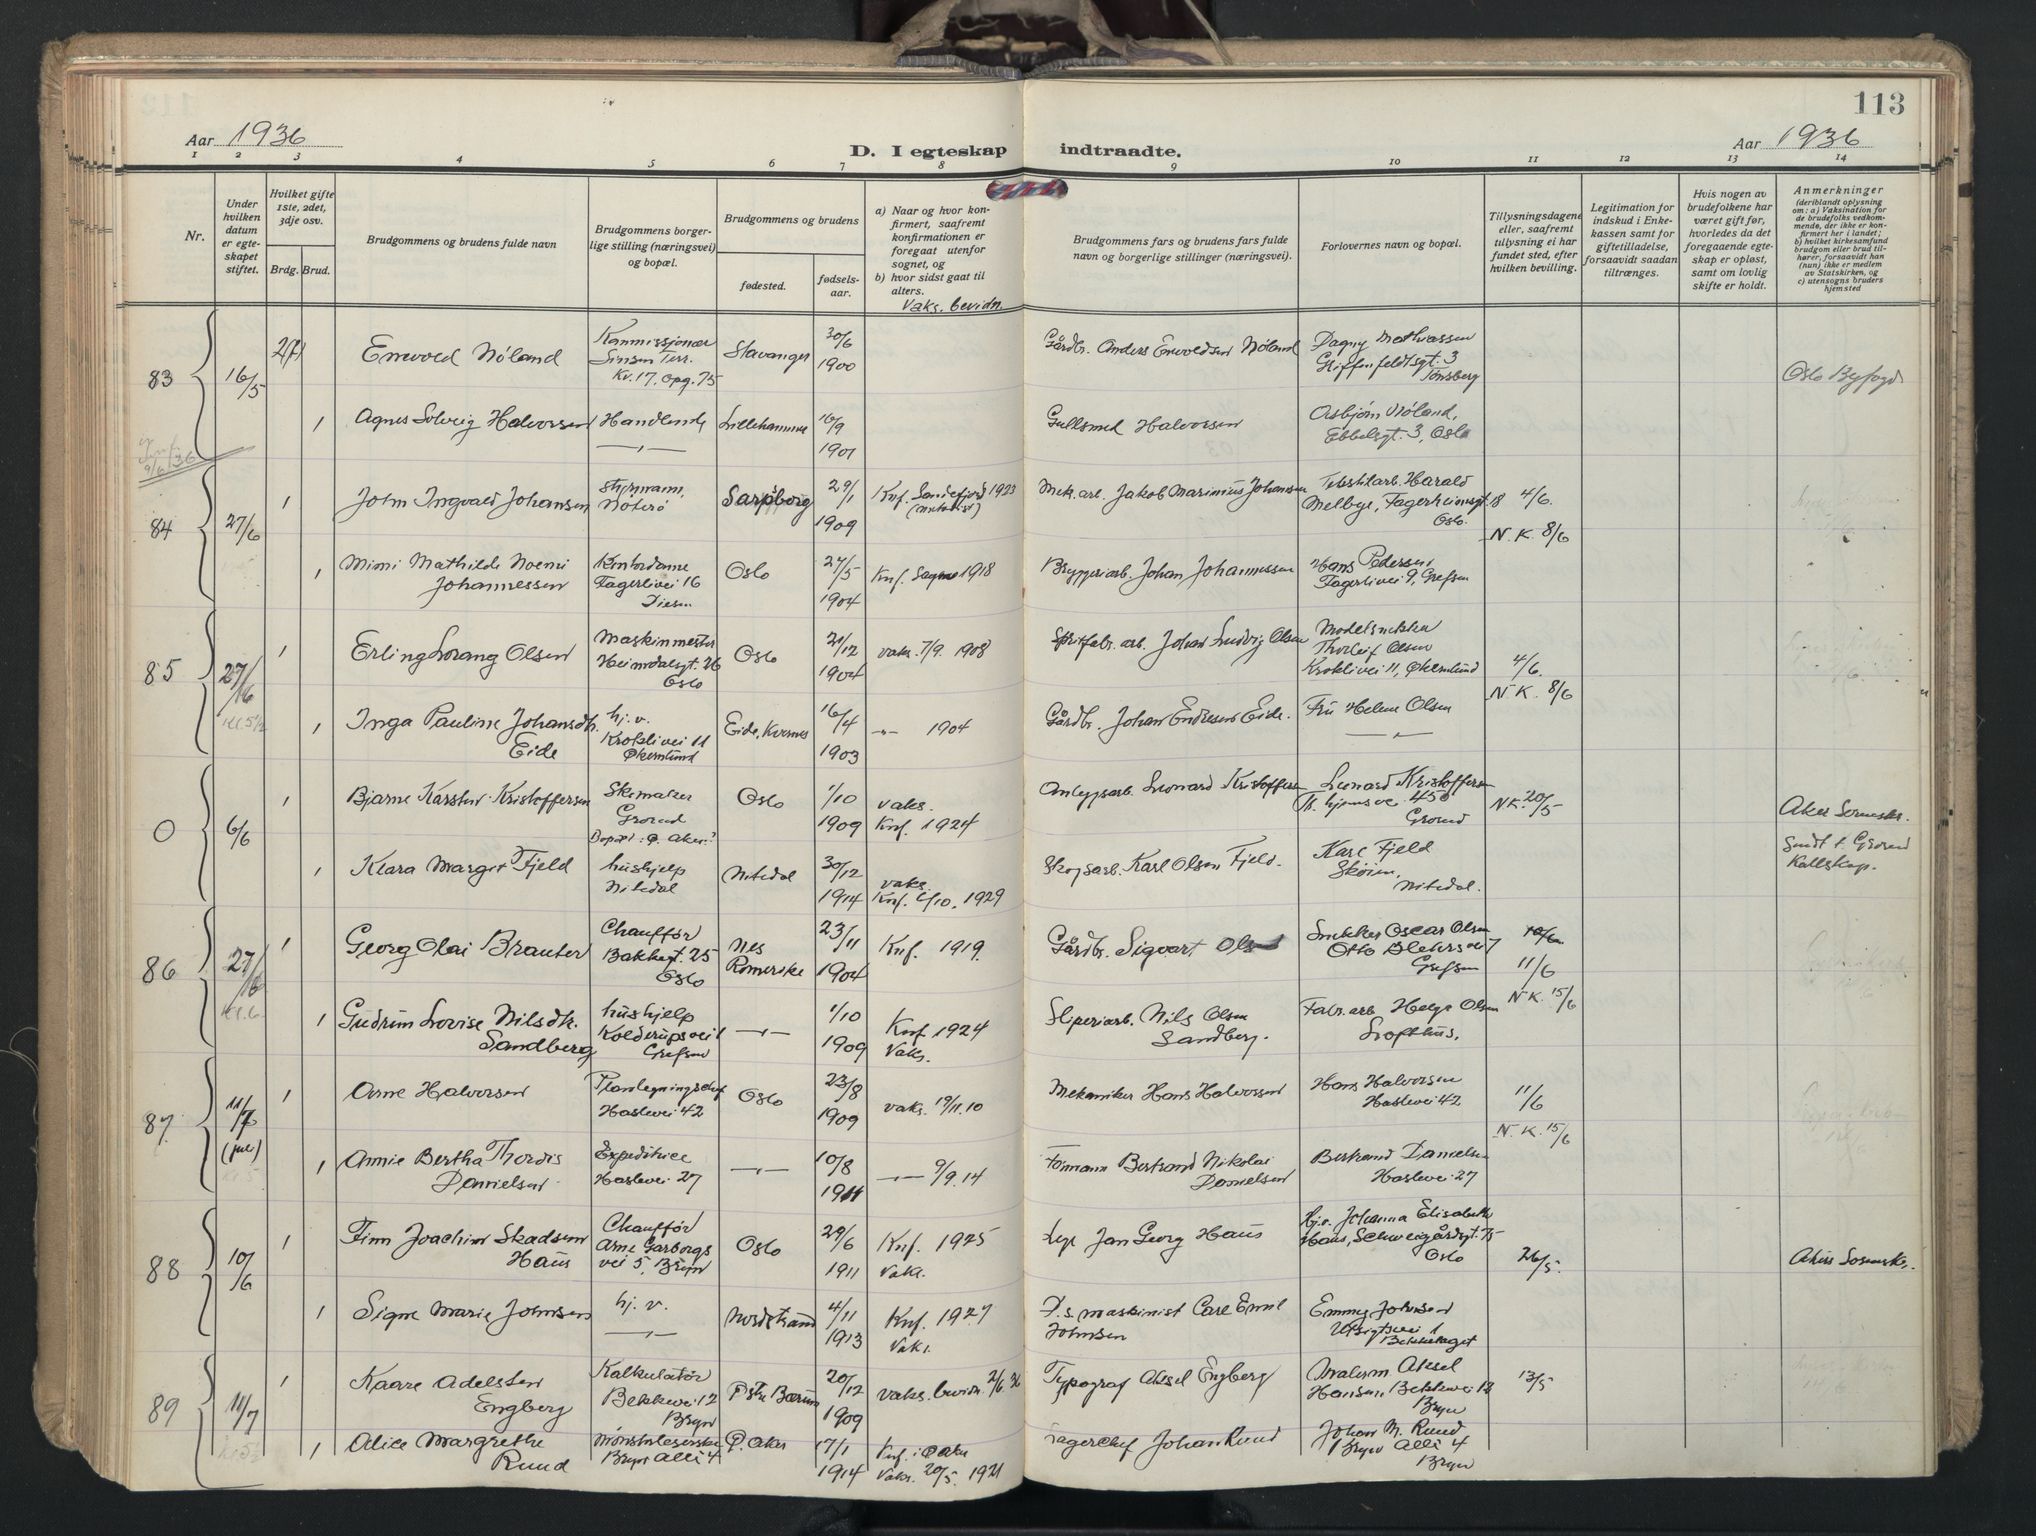 113
Aar 1936
D. I egteskap indtraadte.
Aar 1936
1 2 3 4 5 6 7 8 9 10 11 12 13 14
Nr.
Under hvilken datum er egteskapet stiftet.
Hvilket gifte 1ste, 2det, 3dje osv.
Brdg. Brud.
Brudgommens og brudens fulde navn
Brudgommens borgerlige stilling (næringsvei) og bopæl.
Brudgommens og brudens
fødested.
fødselsaar.
a) Naar og hvor konfirmert, saafremt konfirmationen er foregaat utenfor sognet, og
b) hvor sidst gaat til alters.
Vaks. bevidn.
Brudgommens fars og brudens fars fulde navn og borgerlige stillinger (næringsvei).
Forlovernes navn og bopæl.
Tillysningsdagene eller, saafremt tillysning ei har fundet sted, efter hvilken bevilling.
Legitimation for indskud i Enkekassen samt for giftetilladelse, forsaavidt saadan tiltrænges.
Hvis nogen av brudefolkene har været gift før, hvorledes da det foregaaende egteskap er opløst, samt om lovlig skifte er holdt.
Anmerkninger
(deriblandt oplysning om: a) Vaksination for de brudefolks vedkommende, der ikke er konfirmert her i landet; b) hvilket kirkesamfund brudgom eller brud tilhører, forsaavidt han (hun) ikke er medlem av Statskirken, og c) utensogns bruders hjemsted
83 16/5 Enevold Nøland Kommissjonær Sinsen Terr. Kv. 17, opg. 75 Stavanger 30/6 1900 Gårdbr. Anders Enevoldsen Nøland Dagny Mathiassen Griffenfeldtsgt. 3 Tønsberg Oslo Byfogd
1 Agnes Solveig Halvorsen Handlende Lillehammer 16/9 1901 Gullsmed Halvorsen Asbjørn Nøland, Ebbelsgt. 3, Oslo
9/6 36
84 27/6 1 John Ingvald Johansen styrmann, Nøterø Sarpsborg 29/1 1909 Knf. Sandefjord 1923 Mek. arb. Jakob Marinius Johansen Tekstilarb. Harald Melbye, Fagerheimsgt. 18 Oslo. 4/6. N. K. 8/6
1 Mimi Mathilde Noemi Johannessen Kontordame Fagerlivei 16 Disen Oslo 27/5 1904 Knf. Sagene 1918 Bryggeriarb. Johan Johannessen Hans Pedersen Fagerlivei 9, Grefsen
85 27/6 1 Erling Lorang Olsen Maskinmester Heimdalsgt. 26 Oslo Oslo 21/12 1904 vaks. 7/9. 1908 Spritfabr. arb. Johan Ludvig Olsen Modelsnekker Thorleif Olsen Kroklivei 11, Økernlund 4/6. N. K. 8/6
1 Inga Pauline Johansdtr. Eide hj. v. Kroklivei 11 Økernlund Eide, Kvernes 16/4 1903 —"— 1904 Gårdbr. Johan Endresen Eide. Fru Helene Olsen —"—
0 6/6 1 Bjarne Karsten Kristoffersen Skomaker Grorud Bopæl: Ø. Aker? Oslo 1/10 1909 vaks. Knf. 1924 Anleggsarb. Leonard Kristoffersen Leonard Kristoffersen Tr. hjemsvei 450 Grorud N.K. 20/5 Aker Sorenskr.
1 Klara Margit Fjeld hushjelp Nitedal Nitedal 30/12 1914 vaks. Knf. 6/10. 1929 Skogsarb. Karl Olsen Fjeld. Karl Fjeld Skøien, Nitedal. Sendt t. Grorud Kallskap.
86 27/6 Kl. 6. 1 Georg Olai Brauter Chauffør Bakkegt. 25 Oslo Nes Romerike 23/11 1904 Knf. 1919. Gårdbr. Sigvart Olsen Snekker Oscar Olsen Otto Blehrs vei 7 Grefsen 10/6 11/6 N. K. 15/6
1 Gudrun Lovise Nilsdtr. Sandberg hushjelp Kolderupsvei 1 Grefsen —"— 1/10 1909 Knf. 1924 Vaks. Sliperiarb. Nils Olsen Sandberg. Fabr. arb. Helge Olsen Lofthus.
87 11/7 (juli) 1 Arne Halvorsen Planlegningschef Haslevei 42 Oslo 23/8 1909 vaks. 19/11. 10 Mekaniker Hans Halvorsen Hans Halvorsen Haslevei 42 11/6 N. K. 15/6
1 Annie Bertha Thordis Danielsen Expeditrice Haslevei 27 —"— 10/8 1911 —"— 9/9. 14 Formann Bertrand Nikolai Danielsen Bertrand Danielsen Haslevei 27
88 10/6 1 Finn Joachim Skadsem Haus Chauffør Arne Garborgs vei 5, Bryn Oslo 29/6 1911 Knf. 1925 Vaks. Jan Georg Haus Hj. v. Johanna Elisabeth Haus, Schweigårdsgt. 75 Oslo 26/5. Akers Sorenskr.
1 Signe Marie Johnsen hj. v. —"— Nordstrand 4/11 1913 Knf. 1927 Vaks. D.s. maskinist Carl Emil Johnsen Emmy Johnsen Utsigtsvei 1 Bekkelaget
89 11/7 1 Kaare Adelsten Engberg Kalkulatør Bekkevei 12 Bryn V. Bærum 20/12 1909 vaks. bevidn. 2/6. 36 Typograf Aksel Engberg Malerm. Aksel Hansen Bekkevei 12 Bryn 13/5
1 Alice Margrethe Ruud Bryn Allé 4 Ø. Aker 17/1 1914 Knf. i Ø. Aker Vaks. 20/5. 1921 Lagerchef Johan Ruud Johan M. Ruud Bryn Allé 4 Bryn